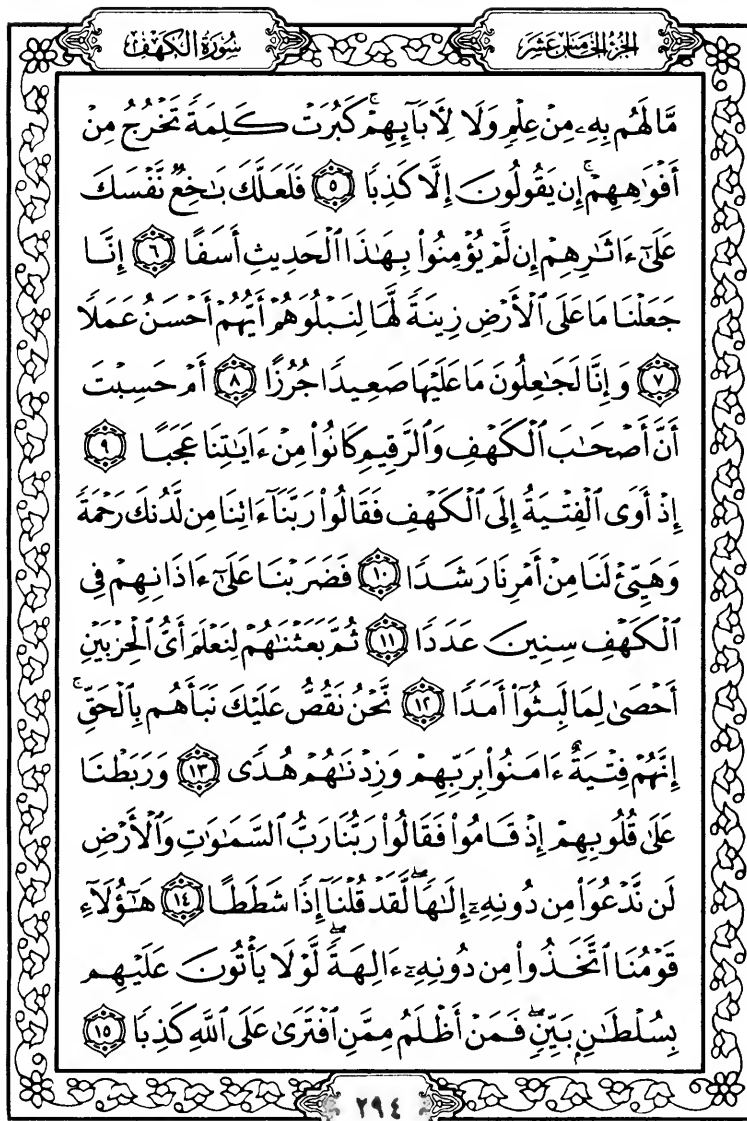 الجزء الخامس عشر
سورة الكهف
مَّا لَهُم بِهِۦ مِنْ عِلْمٍ وَلَا لِـَٔابَآئِهِمْ ۚ كَبُرَتْ كَلِمَةً تَخْرُجُ مِنْ
أَفْوَٰهِهِمْ ۚ إِن يَقُولُونَ إِلَّا كَذِبًا ٥ فَلَعَلَّكَ بَـٰخِعٌ نَّفْسَكَ
عَلَىٰٓ ءَاثَـٰرِهِمْ إِن لَّمْ يُؤْمِنُوا۟ بِهَـٰذَا ٱلْحَدِيثِ أَسَفًا ٦ إِنَّا
جَعَلْنَا مَا عَلَى ٱلْأَرْضِ زِينَةً لَّهَا لِنَبْلُوَهُمْ أَيُّهُمْ أَحْسَنُ عَمَلًا
٧ وَإِنَّا لَجَـٰعِلُونَ مَا عَلَيْهَا صَعِيدًا جُرُزًا ٨ أَمْ حَسِبْتَ
أَنَّ أَصْحَـٰبَ ٱلْكَهْفِ وَٱلرَّقِيمِ كَانُوا۟ مِنْ ءَايَـٰتِنَا عَجَبًا ٩
إِذْ أَوَى ٱلْفِتْيَةُ إِلَى ٱلْكَهْفِ فَقَالُوا۟ رَبَّنَآ ءَاتِنَا مِن لَّدُنكَ رَحْمَةً
وَهَيِّئْ لَنَا مِنْ أَمْرِنَا رَشَدًا ١٠ فَضَرَبْنَا عَلَىٰٓ ءَاذَانِهِمْ فِى
ٱلْكَهْفِ سِنِينَ عَدَدًا ١١ ثُمَّ بَعَثْنَـٰهُمْ لِنَعْلَمَ أَىُّ ٱلْحِزْبَيْنِ
أَحْصَىٰ لِمَا لَبِثُوٓا۟ أَمَدًا ١٢ نَّحْنُ نَقُصُّ عَلَيْكَ نَبَأَهُم بِٱلْحَقِّ ۚ
إِنَّهُمْ فِتْيَةٌ ءَامَنُوا۟ بِرَبِّهِمْ وَزِدْنَـٰهُمْ هُدًى ١٣ وَرَبَطْنَا
عَلَىٰ قُلُوبِهِمْ إِذْ قَامُوا۟ فَقَالُوا۟ رَبُّنَا رَبُّ ٱلسَّمَـٰوَٰتِ وَٱلْأَرْضِ
لَن نَّدْعُوَا۟ مِن دُونِهِۦٓ إِلَـٰهًا ۖ لَّقَدْ قُلْنَآ إِذًا شَطَطًا ١٤ هَـٰٓؤُلَآءِ
قَوْمُنَا ٱتَّخَذُوا۟ مِن دُونِهِۦٓ ءَالِهَةً ۖ لَّوْلَا يَأْتُونَ عَلَيْهِم
بِسُلْطَـٰنٍۭ بَيِّنٍ ۖ فَمَنْ أَظْلَمُ مِمَّنِ ٱفْتَرَىٰ عَلَى ٱللَّهِ كَذِبًا ١٥
٢٩٤